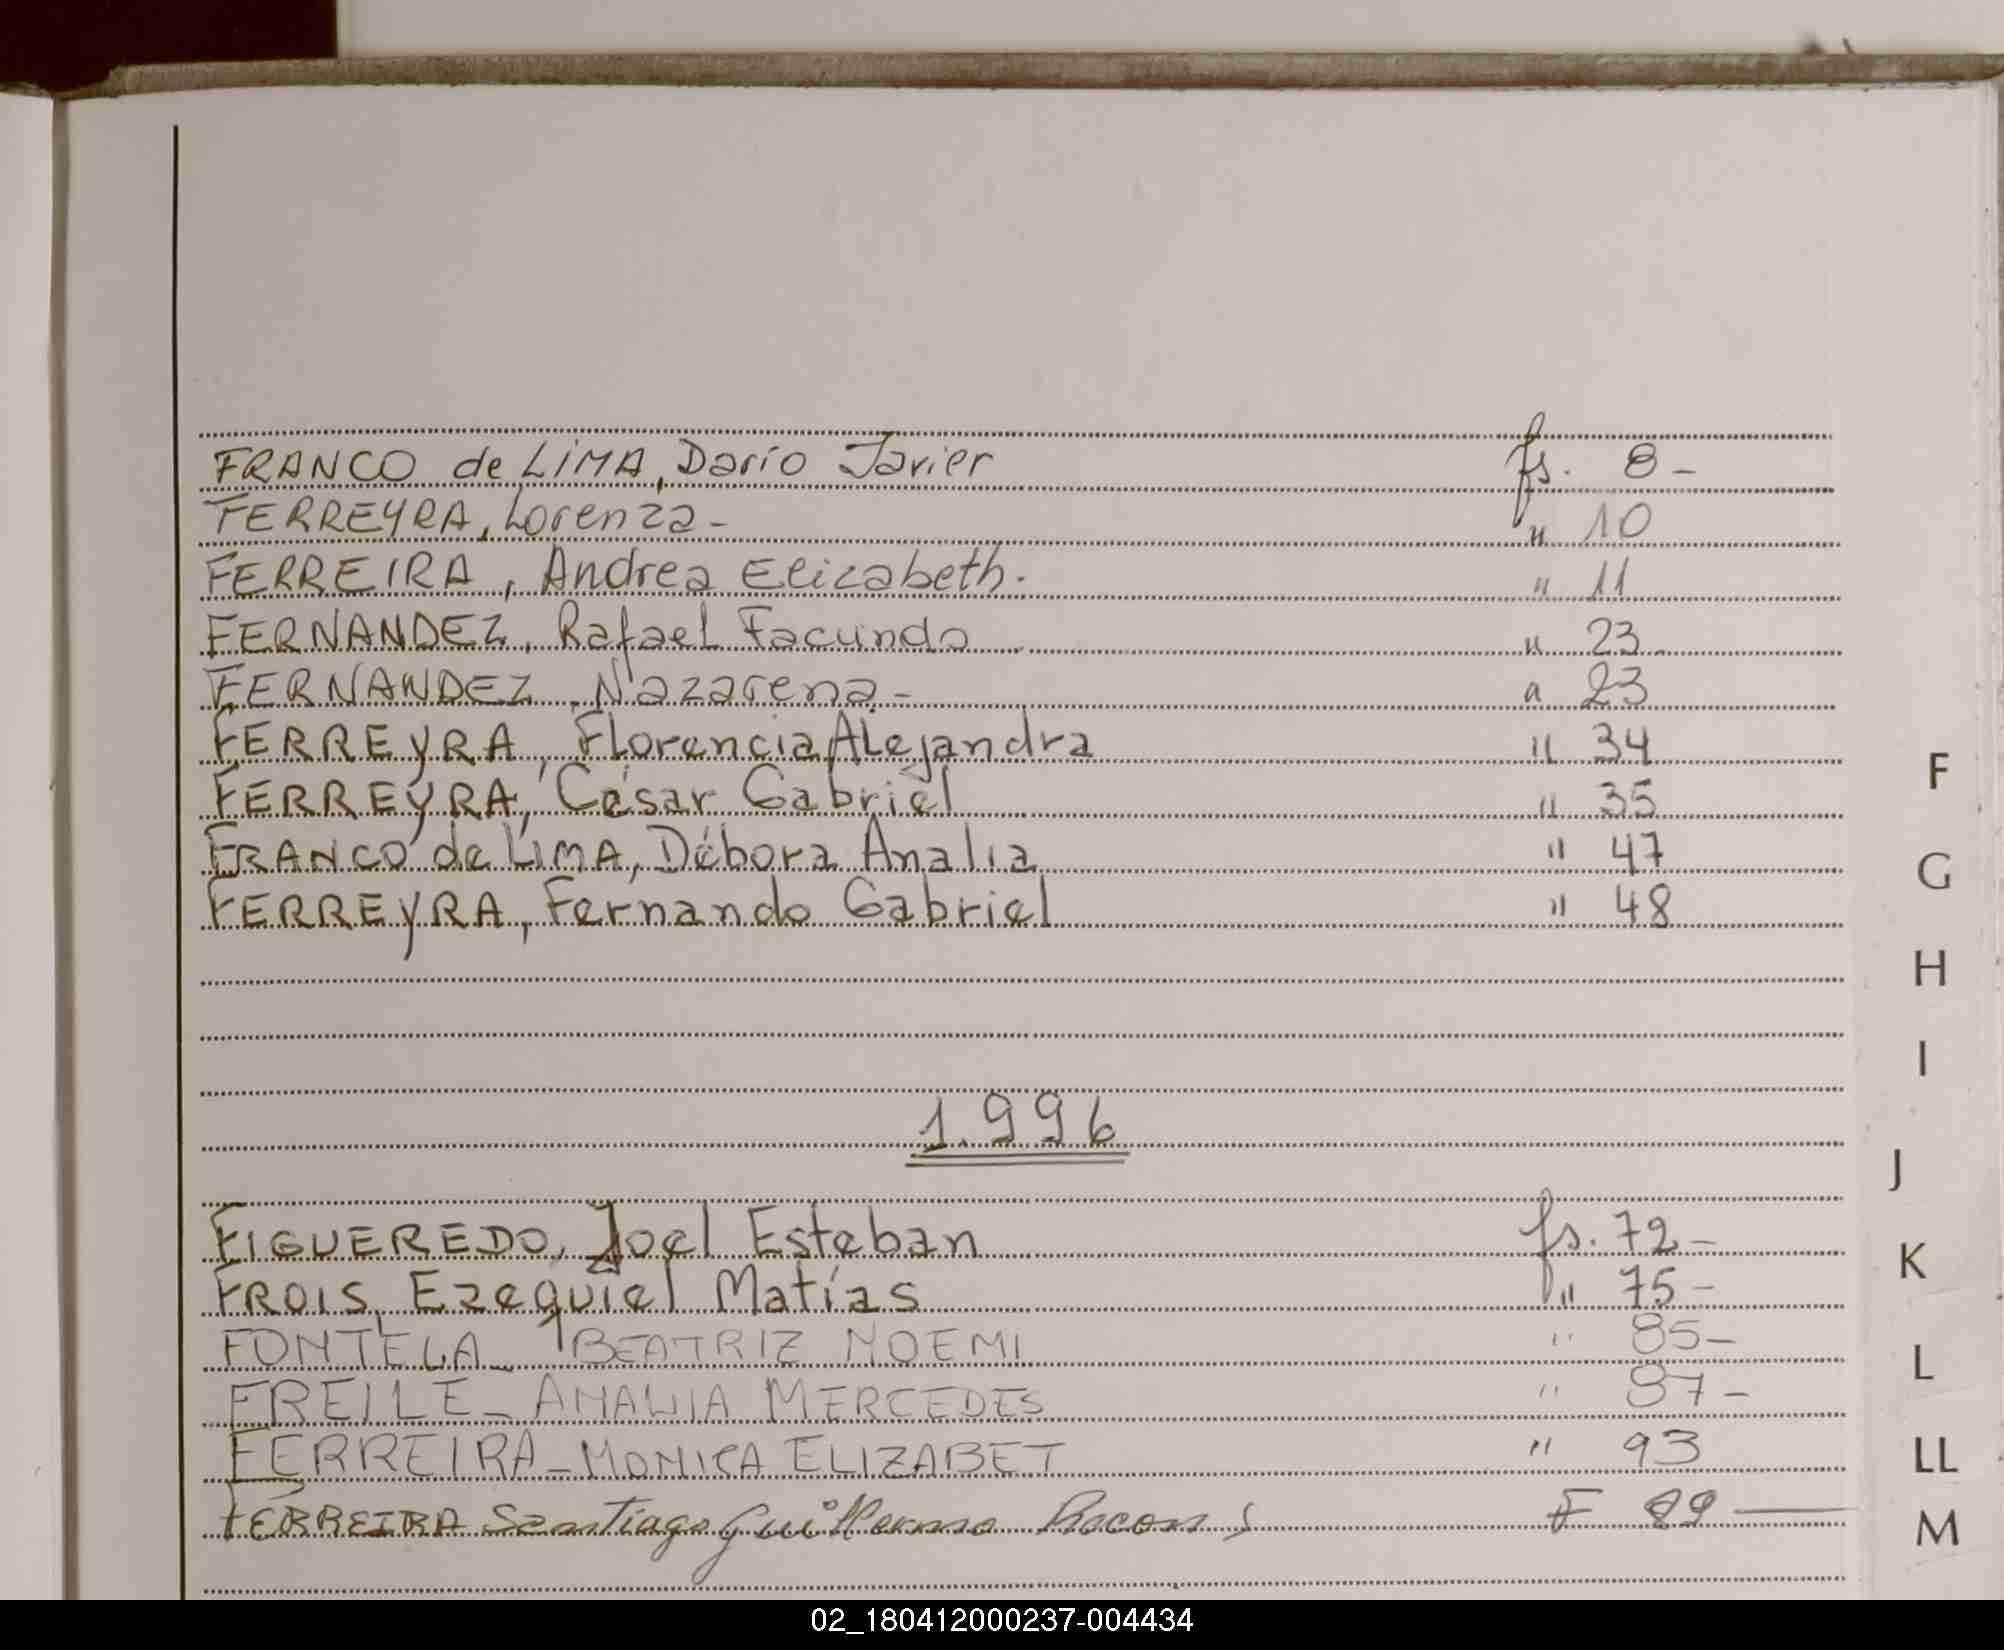 FRANCO de LIMA, Darío Javier fs. 8 -
FERREYRA, Lorenza - " 10
FERREIRA, Andrea Elizabeth. " 11
FERNANDEZ, Rafael Facundo " 23
FERNANDEZ, Nazarena - " 23
FERREYRA, Florencia Alejandra " 34
FERREYRA, César Gabriel " 35
FRANCO de LIMA, Débora Analia " 47
FERREYRA, Fernando Gabriel " 48
1.996
FIGUEREDO, Joel Esteban fs. 72 -
FROIS, Ezequiel Matías " 75 -
FONTELA - BEATRIZ NOEMI " 85 -
FREILE - AMALIA MERCEDES " 87 -
FERREIRA - MONICA ELIZABET " 93
FERREIRA Santiago Guillermo F
F
G
H
I
J
K
L
LL
M
02_180412000237-004434